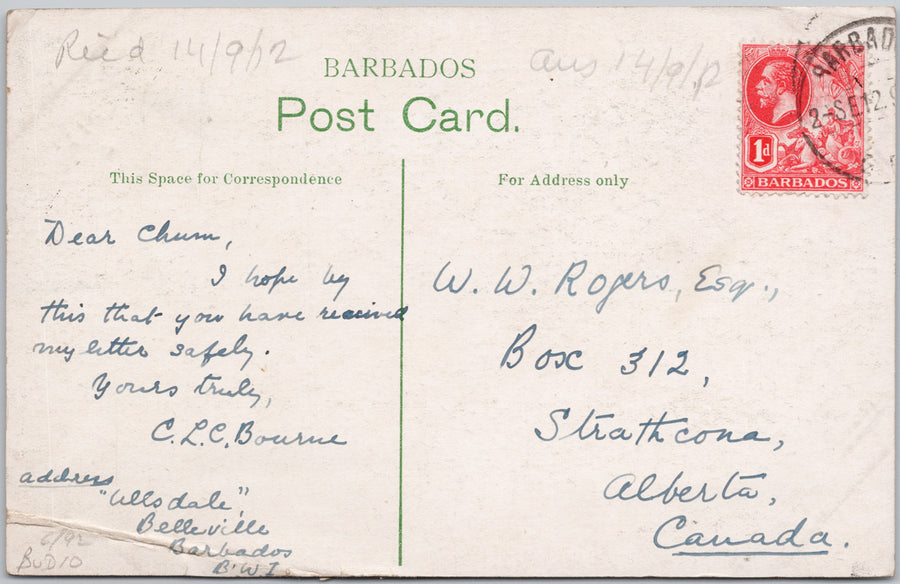 Recd 14/9/12
Ans 14/9/12
BARBADOS
Post Card.
This Space for Correspondence
For Address only
BARBAD
2-SE12
1d
BARBADOS
Dear Chum,
I hope by
this that you have received
my letter safely.
Yours truly,
C.L.C. Bourne
address
"Ullsdale",
Belleville
Barbados
B.W.I.
W. W. Rogers, Esq.,
Box 312,
Strathcona,
Alberta,
Canada.
6/92
BUD10